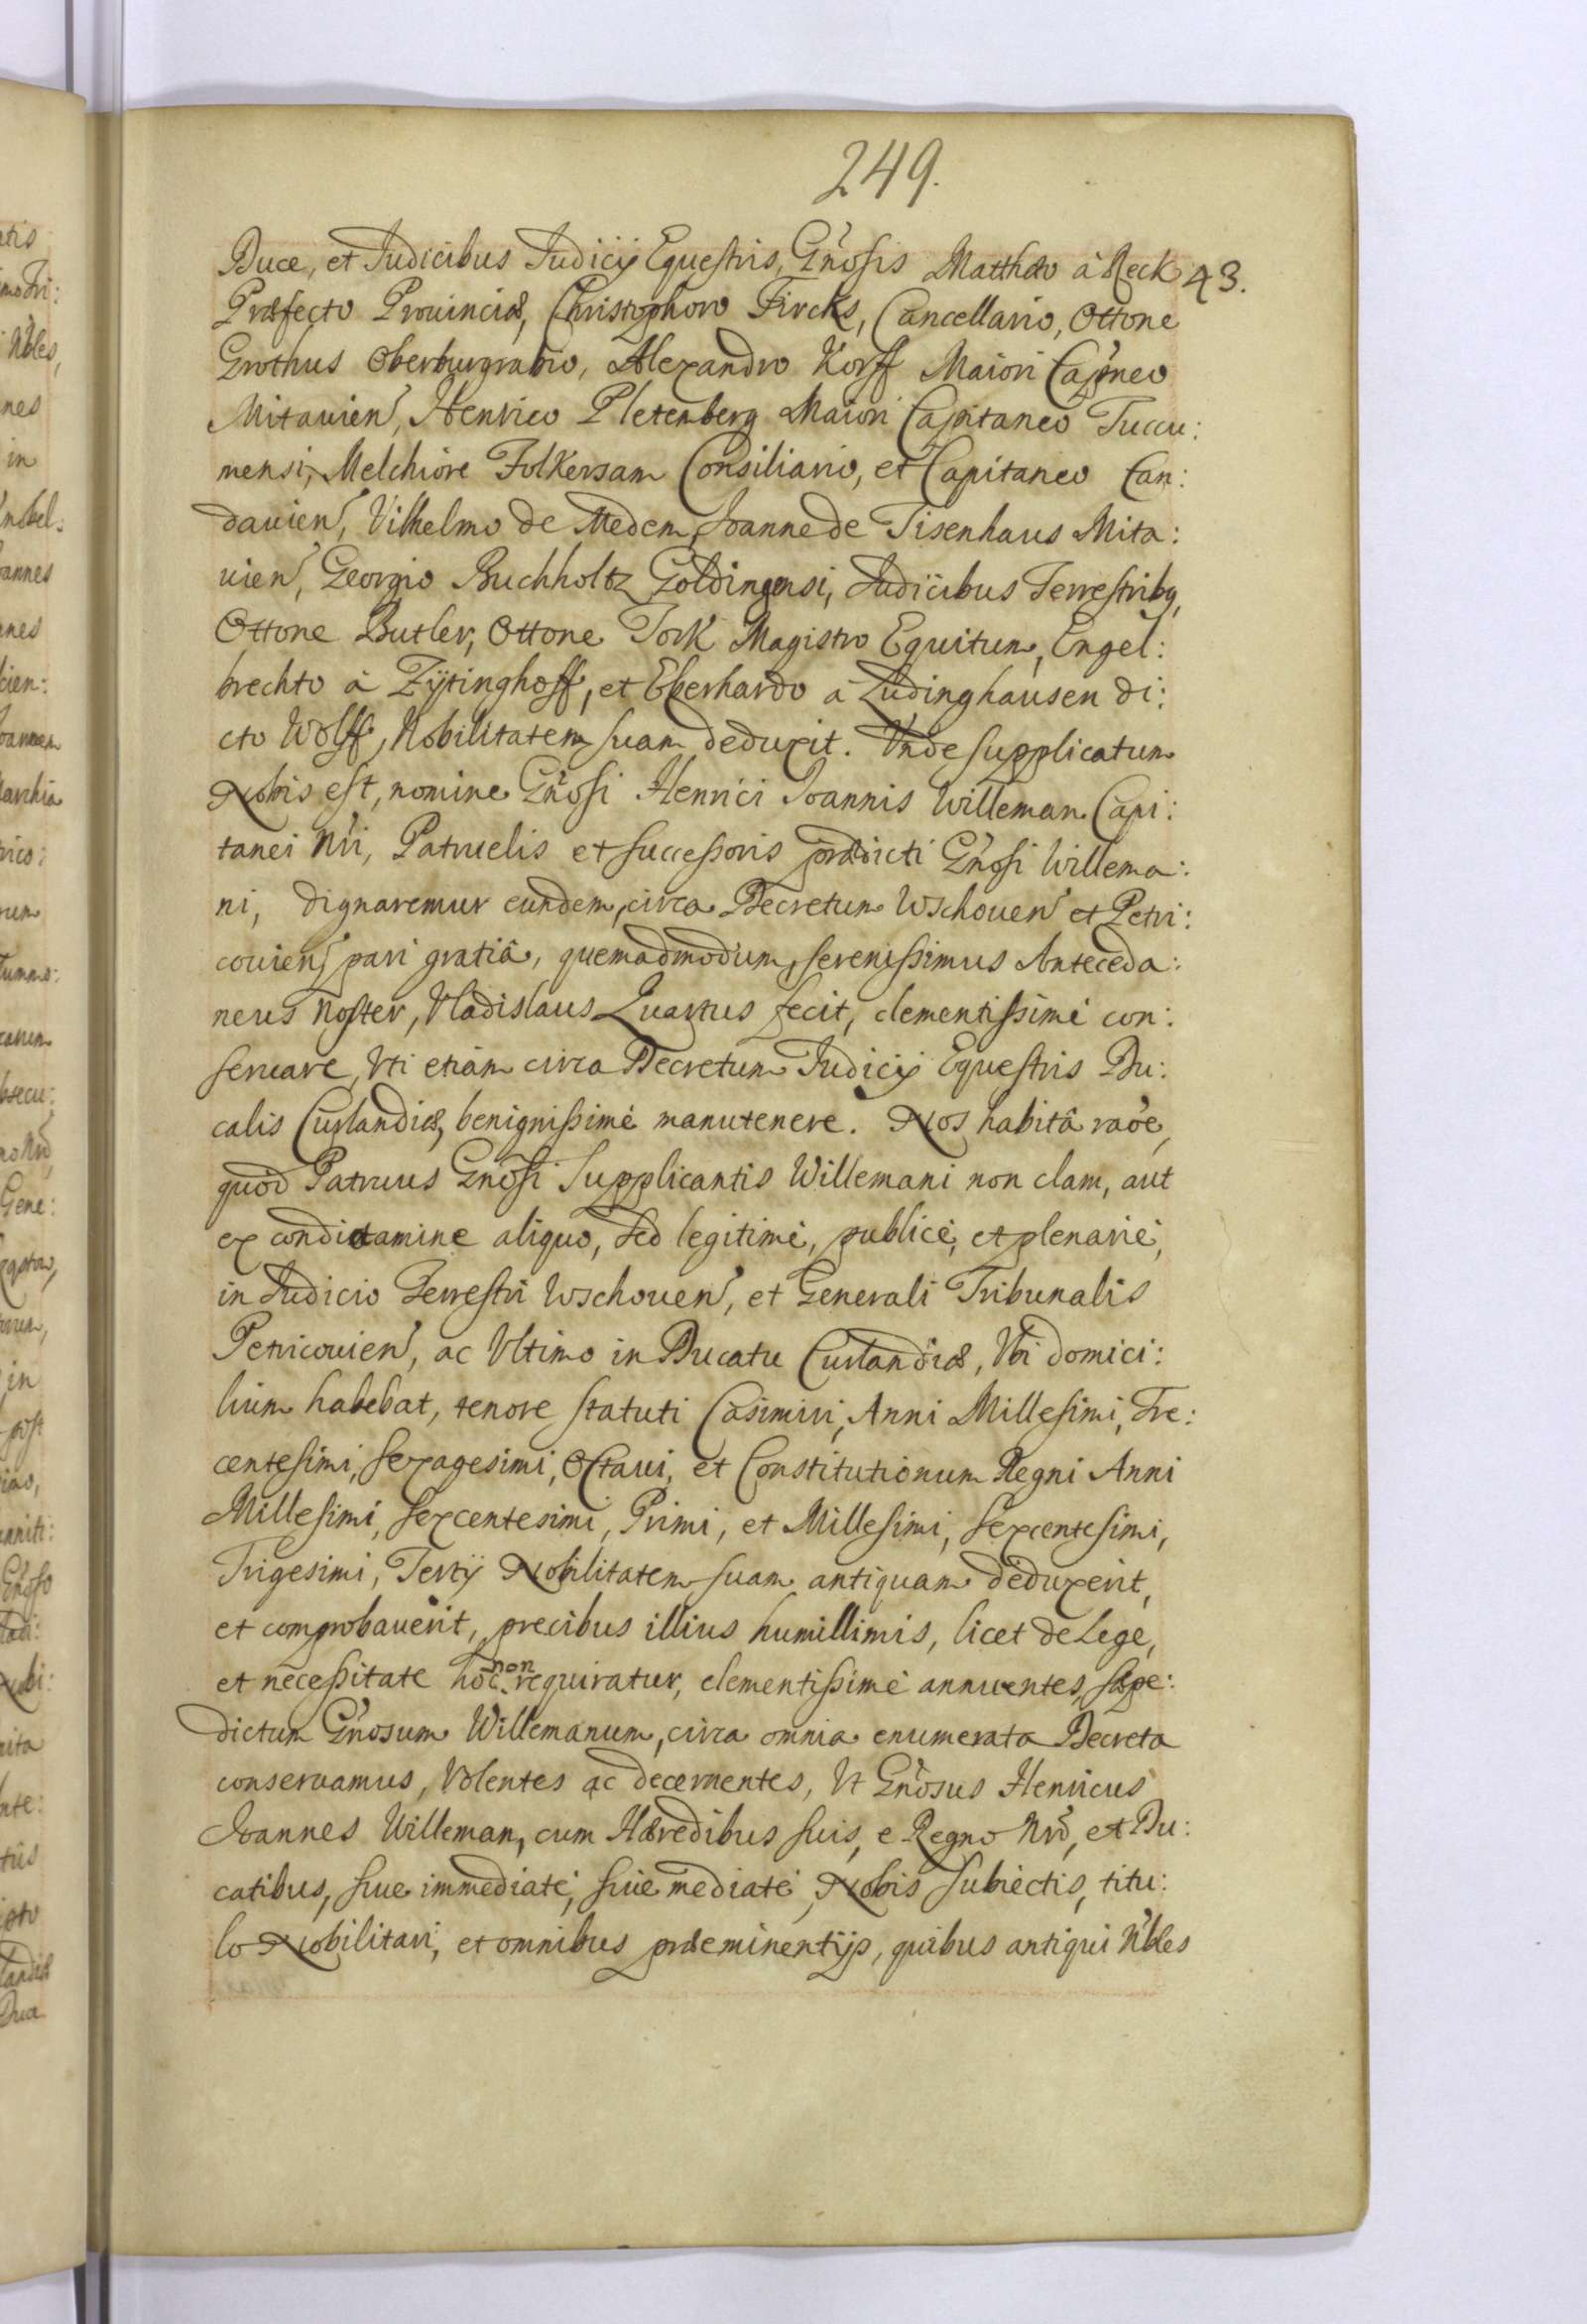 249.
Duce, et Judicibus Judicij Equestris, Gn̄osis Matthæo à Reck 43.
Præfecto Prouinciæ, Christophoro Fircks, Cancellario, Ottone
Grothus Oberburgrabio, Alexandro Korff Maiori Cap̄neo
Mitauien̄, Henrico Pletenberg Maiori Capitaneo Tuccu:
mensi, Melchiore Folkersam Consiliario, et Capitaneo Can:
dauien̄, Vilhelmo de Medem, Joanne de Tisenhaus Mita:
uien̄, Georgio Buchholtz Goldingensi, Judicibus Terrestribq,
Ottone Butler, Ottone Tork Magistro Equitum, Engel:
brechto à Zÿtinghoff, et Eberhardo à Ludinghausen di:
cto Wolff, Nobilitatem suam deduxit. Vnde supplicatum
Nobis est, nomine Gn̄osi Henrici Joannis Willeman Capi:
tanei Nr̄i, Patruelis et successoris prædicti Gn̄osi Willema:
ni, dignaremur eundem, circa Decretum Wschouen̄ et Petri:
couien̄, pari gratiâ, quemadmodum, serenissimus Anteceda:
neus Noster, Vladislaus Quartus fecit, clementissimè con:
seruare, Vti etiam circa Decretum Judicij Equestris Du:
calis Curlandiæ, benignissimè manutenere. Nos habitâ raõe,
quod Patruus Gn̄osi Supplicantis Willemani non clam, aut
ex condictamine aliquo, sed legitimè, publicè, et plenariè,
in Judicio Terrestri Wschouen̄, et Generali Tribunalis
Petricouien̄, ac Vltimo in Ducatu Curlandiæ, Vbi domici:
lium habebat, tenore statuti Casimiri, Anni Millesimi, Tre:
centesimi, sexagesimi, Octaui, et Constitutionum Regni Anni
Millesimi, sexcentesimi, Primi, et Millesimi, sexcentesimi,
Trigesimi, Tertij Nobilitatem suam antiquam deduxerit,
et comprobauerit, precibus illius humillimis, licet de Lege,
et necessitate hoc non requiratur, clementissimè annuentes, sæpe:
dictum Gn̄osum Willemanum, circa omnia enumerata Decreta
conseruamus, Volentes ac decernentes, Vt Gn̄osus Henricus
Joannes Willeman, cum Hæredibus suis, e Regno Nr̄o, et Du:
catibus, siue immediatè, siue mediatè, Nobis subiectis, titu:
lo Nobilitari, et omnibus præeminentijs, quibus antiqui N̄bles